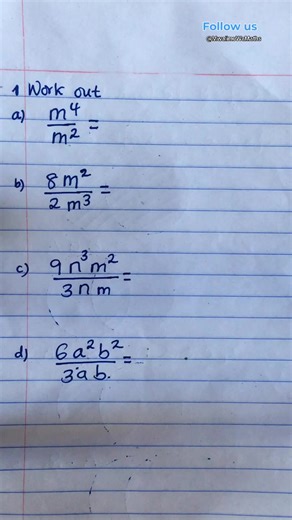 Follow us
@MwalimuWaMaths
1 Work out
a) m⁴/m² =
b) 8m²/2m³ =
c) 9n³m²/3nm =
d) 6a²b²/3ab. =